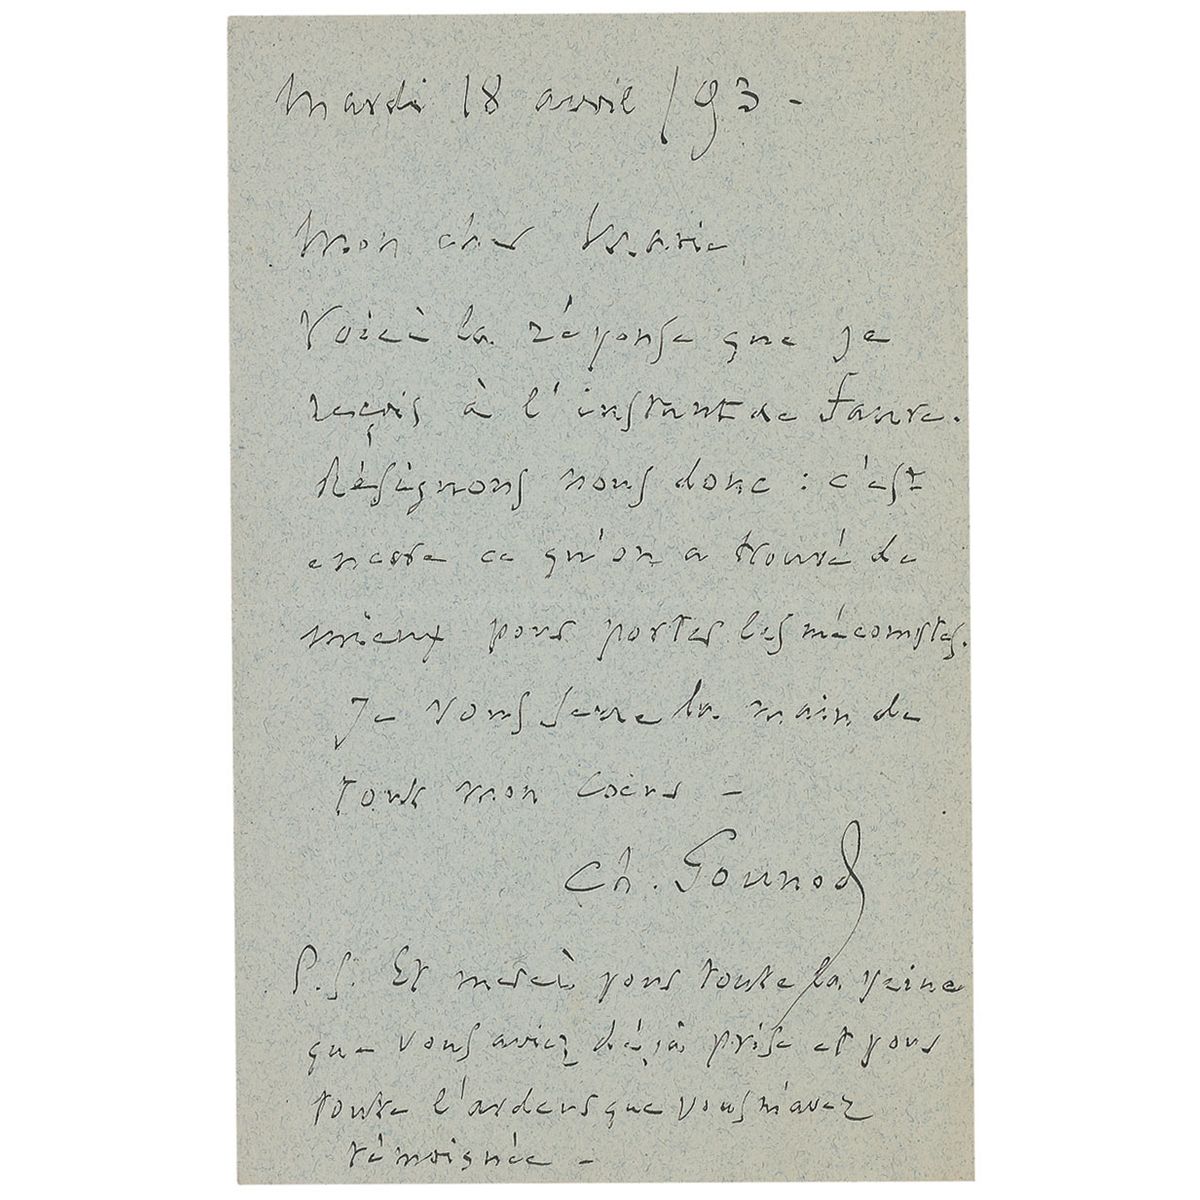 Mardi 18 avril /93 -
Mon cher
Voici la réponse que je
reçois à l'instant de Faure.
Résignons nous donc : c'est
encore ce qu'on a trouvé de
mieux pour porter les mécomptes.
Je vous serre la main de
tout mon cœur -
Ch. Gounod
P.S. Et merci pour toute la peine
que vous aviez déjà prise et pour
toute l'ardeur que vous m'avez
témoignée -